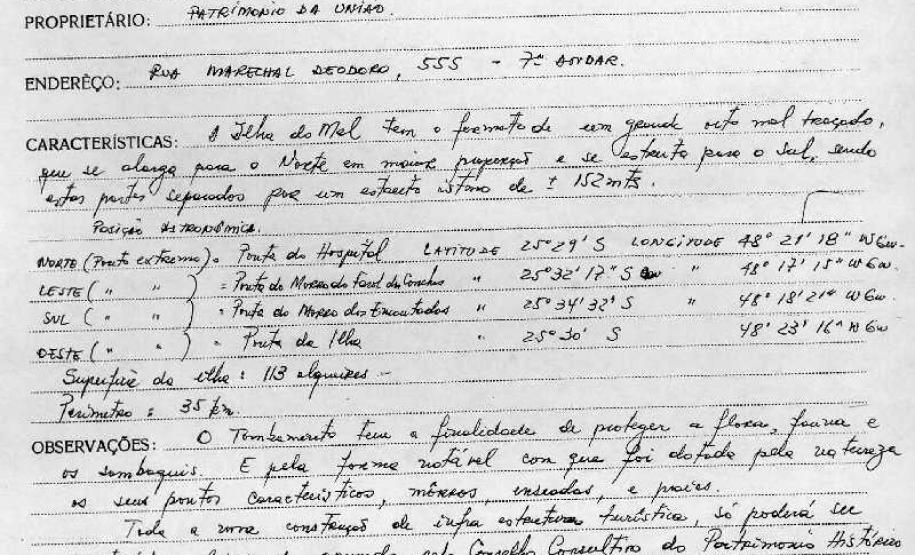 PROPRIETÁRIO: PATRIMONIO DA UNIÃO.
ENDERÊÇO: RUA MARECHAL DEODORO, 555 - 7º ANDAR.
CARACTERÍSTICAS: A Ilha do Mel tem o formato de um grande oito mal traçado,
que se alarga para o Norte em maior proporção e se estreita para o Sul, sendo
estas partes separadas por um estreito istmo de ± 152 mts.
Posição ASTRONÔMICA.
NORTE (Ponto extremo) = Ponta do Hospital LATITUDE 25º29' S LONGITUDE 48º 21' 18" W Gw.
LESTE ( " " ) = Ponta do Morro do Farol das Conchas " 25º32' 17" S " 48º 17' 15" W Gw.
SUL ( " " ) = Ponta do Morro das Encantadas " 25º 34' 32' S " 48º 18' 21" W Gw.
OESTE ( " " ) = Ponta da Ilha " 25º 30' S 48' 23' 16" W Gw
Superfície da ilha : 113 alqueires -
Perímetro : 35 km.
OBSERVAÇÕES: O Tombamento tem a finalidade de proteger a flora, fauna e
os sambaquis. E pela forma notável com que foi dotada pela natureza
os seus pontos característicos, morros, enseadas, e praias.
Toda a nova construção de infra estrutura turística, só poderá ser
pelo Conselho Consultivo do Patrimonio Histórico